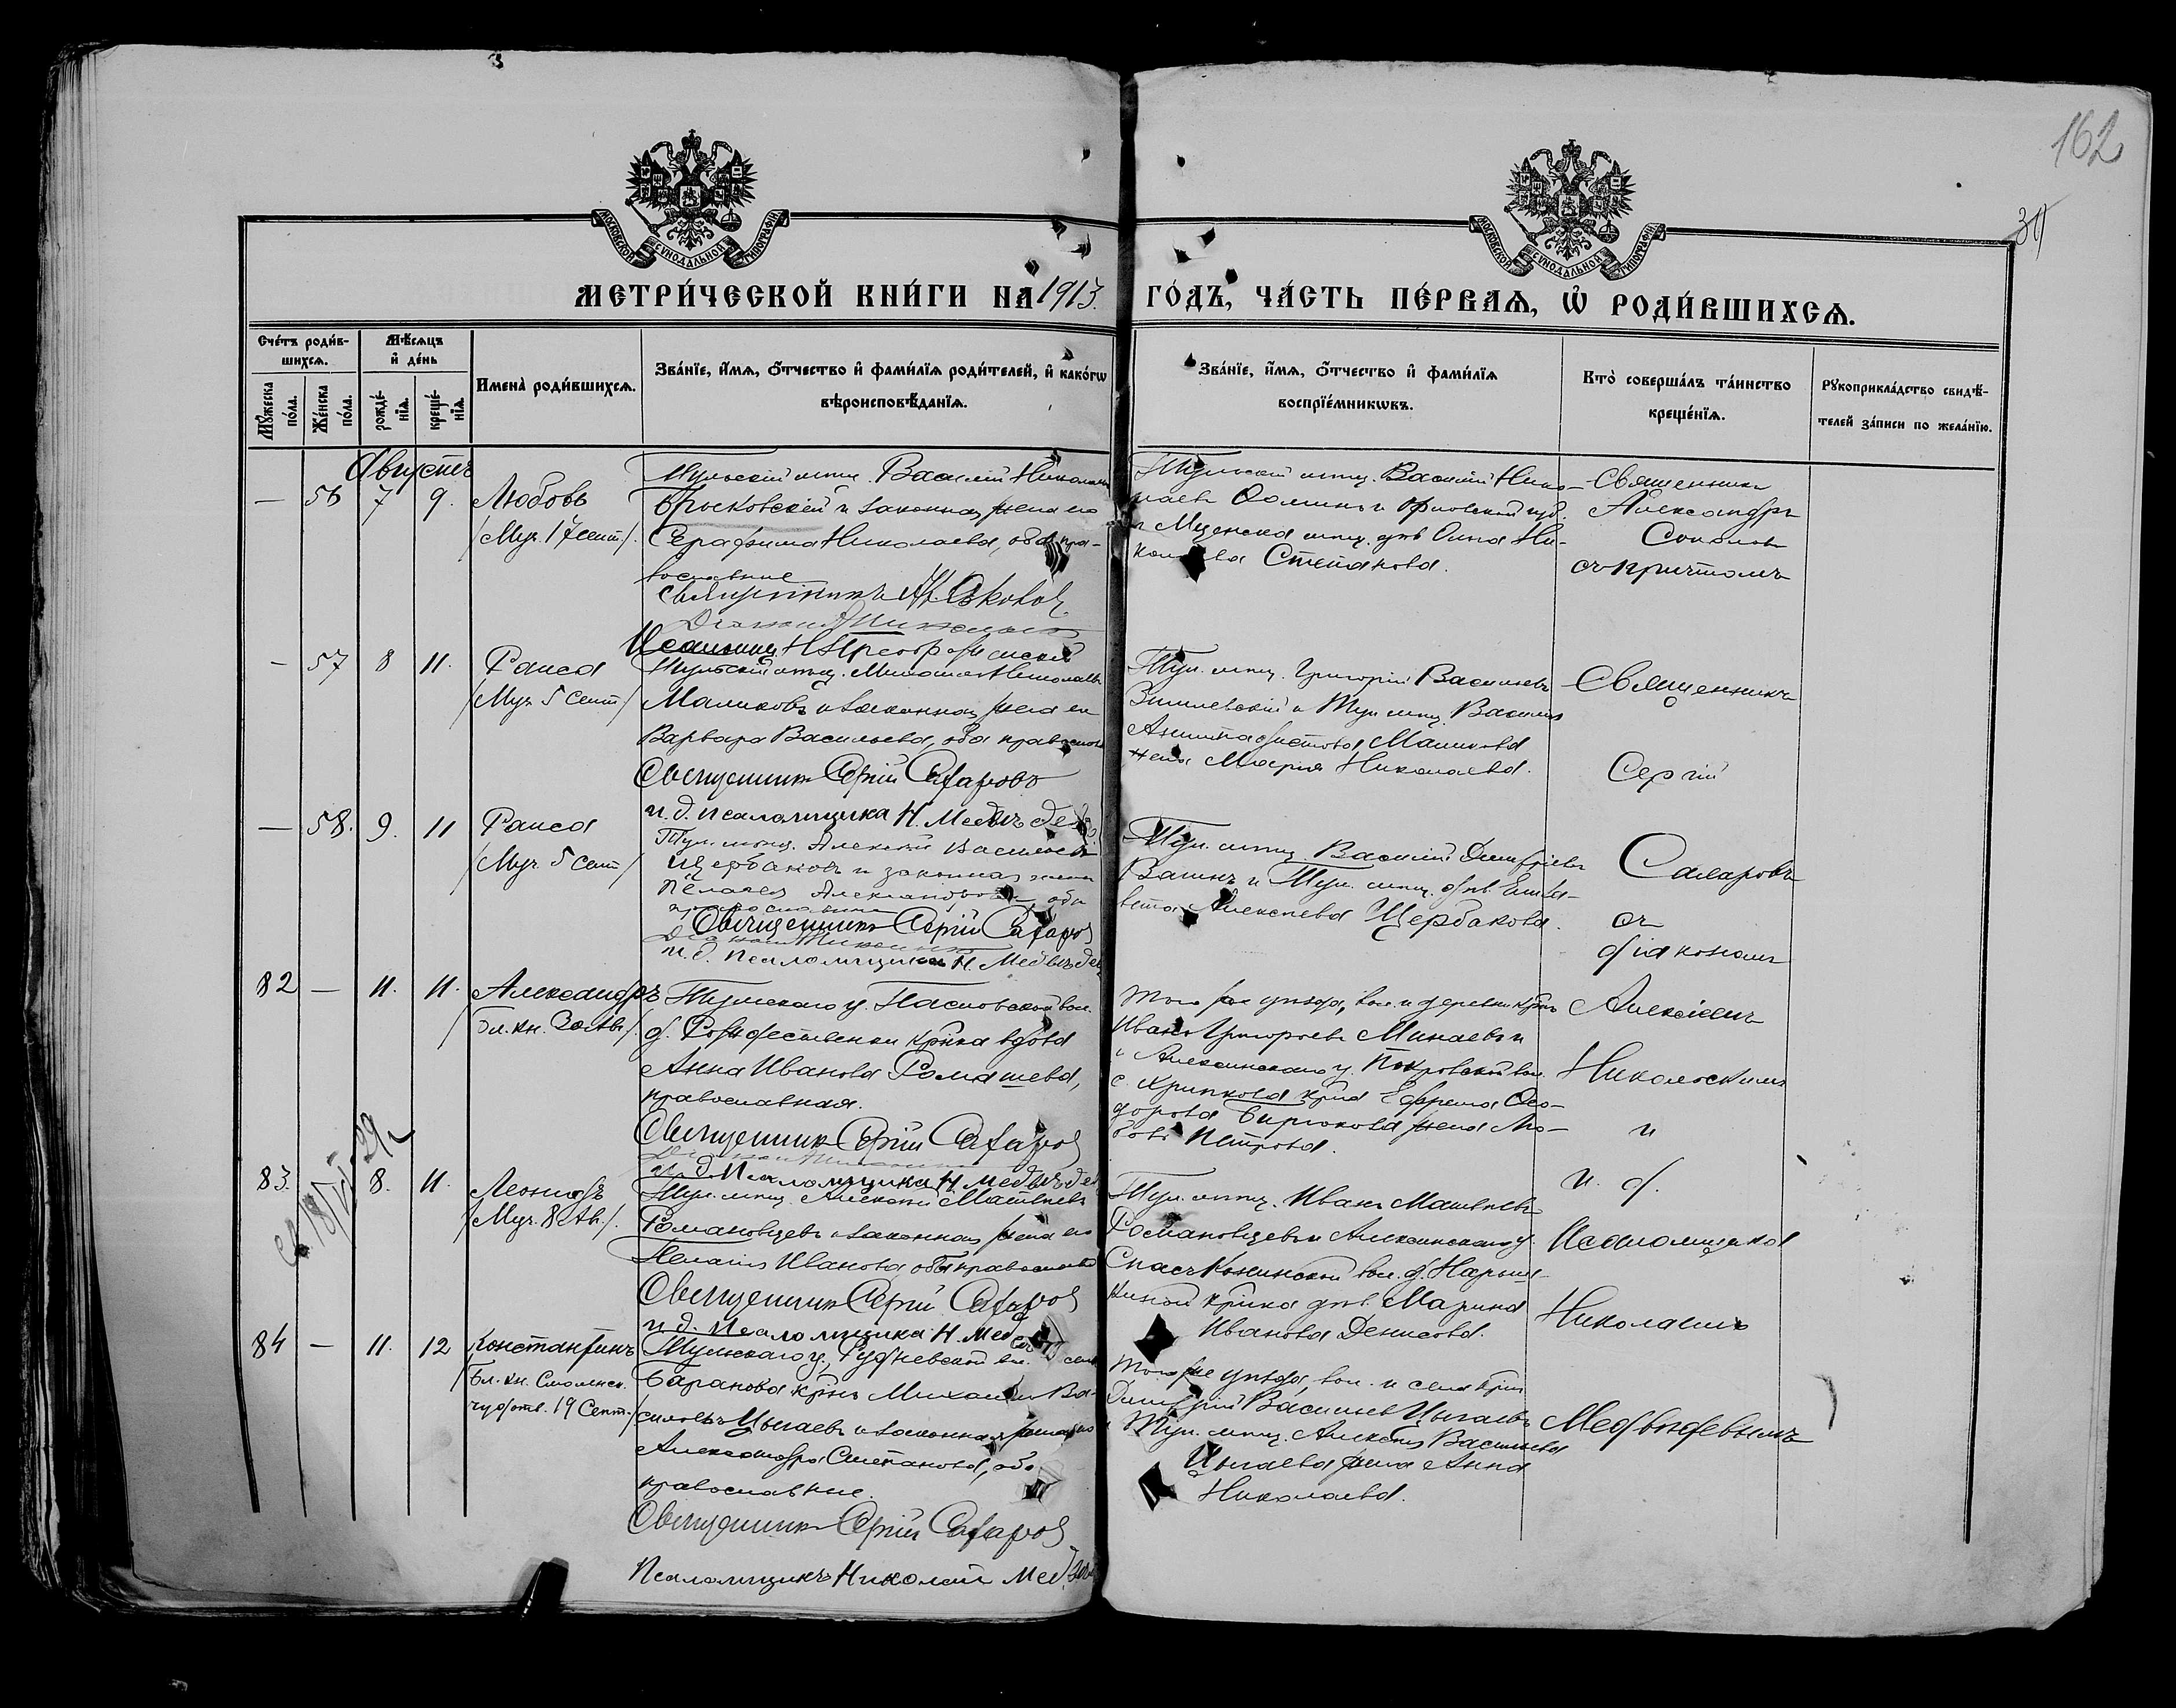 162
30
МОСКОВСКОЙ СУНОДАЛЬНОЙ ТИПОГРАФІИ
МОСКОВСКОЙ СУНОДАЛЬНОЙ ТИПОГРАФІИ
МЕТРИ́ЧЕСКОЙ КНИ́ГИ НА 1913 ГО́ДЪ, ЧА́СТЬ ПЕ́РВАѦ, Ѡ҆ РОДИ́ВШИХСѦ.
Сче́тъ роди́в-
шихсѧ.
Мꙋ́жеска по́ла.
Же́нска по́ла.
Мѣ́сѧцъ
и҆ де́нь
рожде́-
нїѧ.
креще́-
нїѧ.
Имена̀ роди́вшихсѧ.
Зва́нїе, и҆́мѧ, ѻ҆́тчество и҆ фами́лїѧ роди́телей, и҆ како́гѡ
вѣроисповѣ́данїѧ.
Зва́нїе, и҆́мѧ, ѻ҆́тчество и҆ фами́лїѧ
воспрїе́мникѡвъ.
Кто̀ соверша́лъ та́инство
креще́нїѧ.
Рꙋкоприкла́дство свидѣ́-
телей за́писи по жела́нїю.
Августъ
— 56 7 9. Любовь
/Муч. 17 сент./
Тульскій мѣщ. Василій Николаевъ
и законная жена его
Серафима Николаева, оба пра-
вославные
Священникъ Ал. Соколовъ
Діаконъ А. Никольскій
Псаломщ. Н. Преображенскій
Тульскій мѣщ. Василій Нико-
лаевъ и Орловской губ.
г. Мценска мѣщ. дѣв. Анна Ни-
колаева Степанова.
Священникъ
Александръ
Соколовъ
съ причтомъ
— 57 8 11. Раиса
/Муч. 5 Сент./
Тульскій мѣщ. Николаевъ
Маликовъ и законная жена его
Варвара Васильева, оба православные
Священникъ Сергій Сахаровъ
и. д. псаломщика Н. Медвѣдевъ
Тул. мѣщ. Григорій Васильевъ
и Тул. мѣщ.
Маликова
жена Марія Николаева.
Священникъ
Сергій
— 58. 9. 11 Раиса
/Муч. 5 Сент/
Тул. мѣщ. Алексѣй Васильевъ
Щербаковъ и законная жена
Пелагея Александрова, оба
православные
Священникъ Сергій Сахаровъ
Діаконъ А. Никольскій
и. д. псаломщика Н. Медвѣдевъ
Тул. мѣщ. Василій Димитріевъ
и Тул. мѣщ. дѣв. Елиза-
вета Алексѣева Щербакова.
Сахаровъ
съ
діакономъ
82 — 11. 11. Александръ
/Бл. кн. 30 Ав./
Тульскаго у. вол.
д. Рождественки крѣка вдова
Анна Иванова Ромашева,
православная.
Священникъ Сергій Сахаровъ
и. д. Псаломщика Н. Медвѣдевъ
Того же уѣзда, вол. и деревни крѣнъ
Иванъ Григорьевъ Минаевъ и
Алексинскаго у. Покровской вол.
с. Хрипкова крѣна Ефрема Ѳео-
дорова Бирюкова жена Лю-
бовь Петрова.
Алексіемъ
Никольскимъ
и
83. — 8. 11. Леонидъ
/Муч. 8 Ав./
Тул. мѣщ. Алексѣй Матвѣевъ
Романовцевъ и законная жена его
Пелагія Иванова, оба православные
Священникъ Сергій Сахаровъ
и. д. Псаломщика Н. Медвѣдевъ
Тул. мѣщ. Иванъ Матвѣевъ
Романовцевъ и Алексинскаго у.
Спасъ Конинской вол. д. Нарыш-
киной крѣнка дѣв. Марина
Иванова Денисова.
и. д.
Псаломщика
Николаемъ
84 — 11. 12 Константинъ
/Бл. кн. Смоленск.
чудотв. 19 Сент./
Тульскаго у., Рудневской вол. села
Баранова крѣнъ Михаилъ Ва-
сильевъ Цыгаевъ и законная жена его
Александра Степанова, оба
православные.
Священникъ Сергій Сахаровъ
Псаломщикъ Николай Медвѣдевъ
Того же уѣзда, вол. и села крѣнъ
Димитрій Васильевъ Цыгаевъ
и Тул. мѣщ. Алексѣя Васильева
Цыгаева жена Анна
Николаева.
Медвѣдевымъ